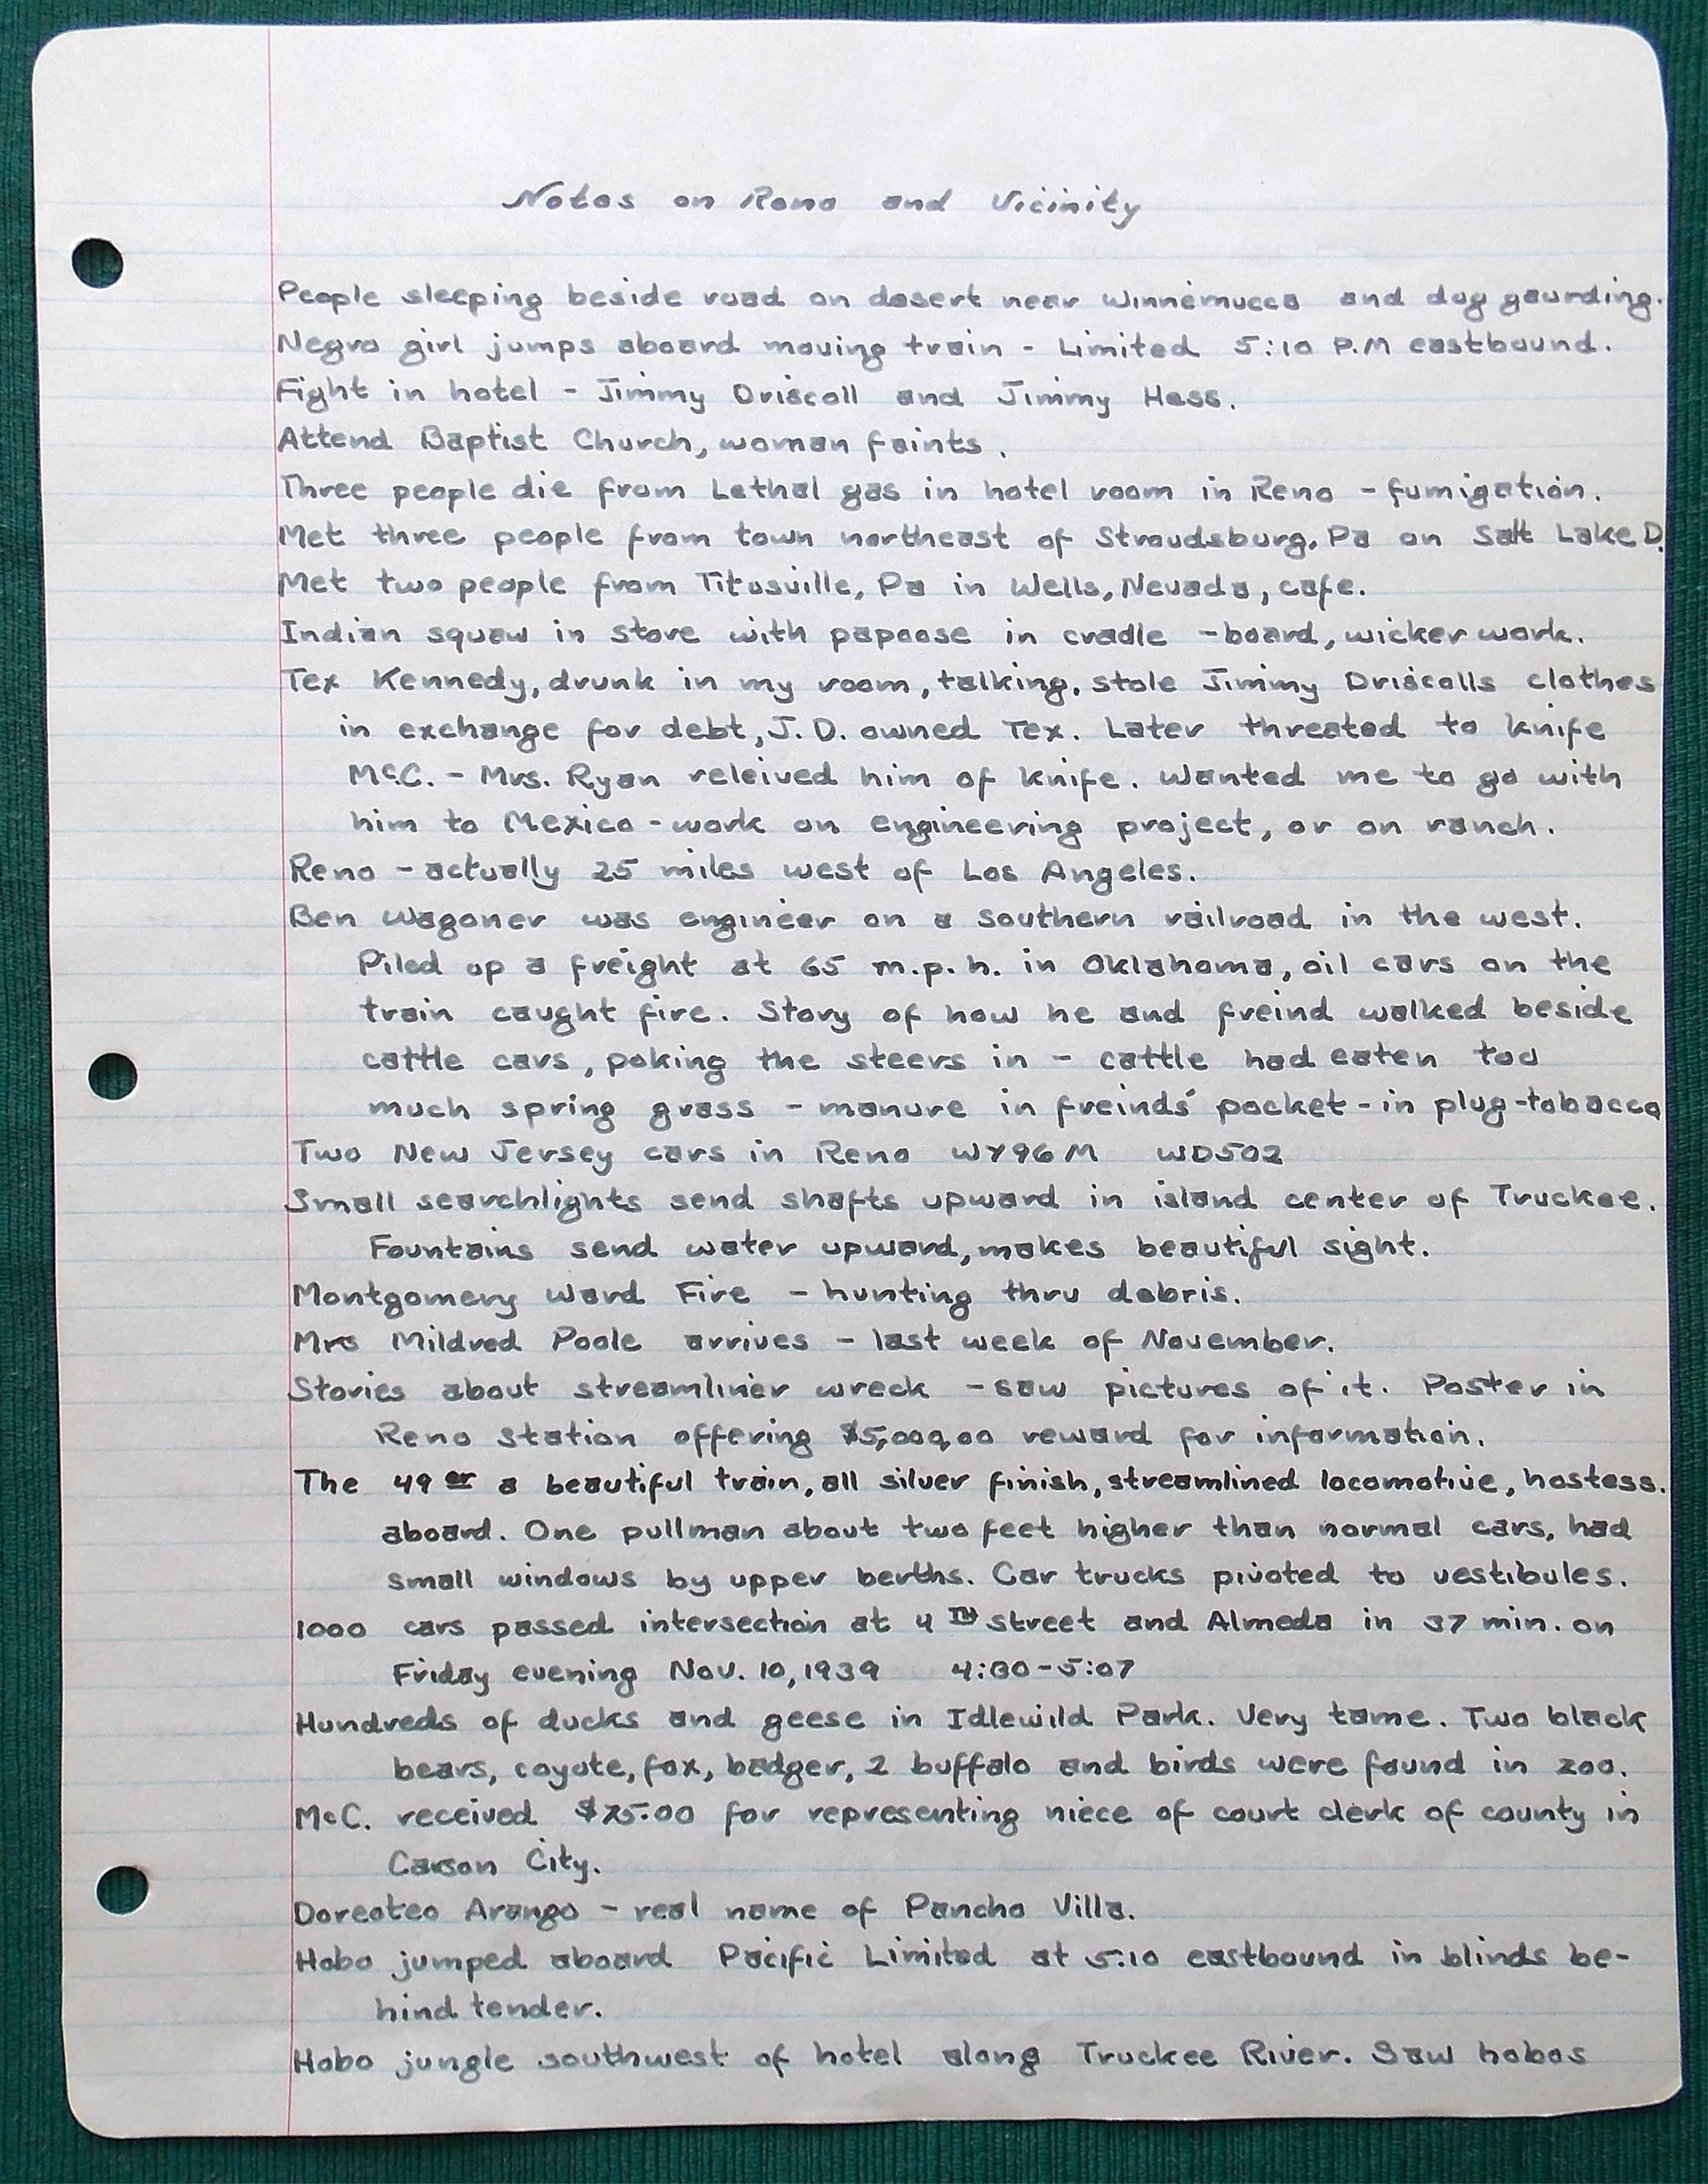 Notes on Reno and Vicinity
People sleeping beside road on desert near Winnemucca and dog gaurding.
Negro girl jumps aboard moving train - Limited 5:10 P.M eastbound.
Fight in hotel - Jimmy Driscoll and Jimmy Hess.
Attend Baptist Church, woman faints.
Three people die from Lethal gas in hotel room in Reno - fumigation.
Met three people from town northeast of Stroudsburg, Pa on Salt Lake D.
Met two people from Titusville, Pa in Wells, Nevada, cafe.
Indian squaw in store with papoose in cradle - board, wicker work.
Tex Kennedy, drunk in my room, talking, stole Jimmy Driscolls clothes
in exchange for debt, J. D. owned Tex. Later threated to knife
McC. - Mrs. Ryan releived him of knife. Wanted me to go with
him to Mexico - work on engineering project, or on ranch.
Reno - actually 25 miles west of Los Angeles.
Ben Wagoner was engineer on a southern railroad in the west.
Piled up a freight at 65 m.p.h. in Oklahoma, oil cars on the
train caught fire. Story of how he and freind walked beside
cattle cars, poking the steers in - cattle had eaten too
much spring grass - manure in freinds' pocket - in plug-tobacco
Two New Jersey cars in Reno WY96M WD502
Small searchlights send shafts upward in island center of Truckee.
Fountains send water upward, makes beautiful sight.
Montgomery Ward Fire - hunting thru debris.
Mrs Mildred Poole arrives - last week of November.
Stories about streamliner wreck - saw pictures of it. Poster in
Reno Station offering $5,000.00 reward for information.
The 49er a beautiful train, all silver finish, streamlined locomotive, hostess.
aboard. One pullman about two feet higher than normal cars, had
small windows by upper berths. Car trucks pivoted to vestibules.
1000 cars passed intersection at 4TH street and Almeda in 37 min. on
Friday evening Nov. 10, 1939 4:30-5:07
Hundreds of ducks and geese in Idlewild Park. Very tame. Two black
bears, coyote, fox, badger, 2 buffalo and birds were found in zoo.
McC. received $75.00 for representing niece of court clerk of county in
Carson City.
Doreoteo Arango - real name of Pancho Villa.
Hobo jumped aboard Pacific Limited at 5:10 eastbound in blinds be-
hind tender.
Hobo jungle southwest of hotel along Truckee River. Saw hobos